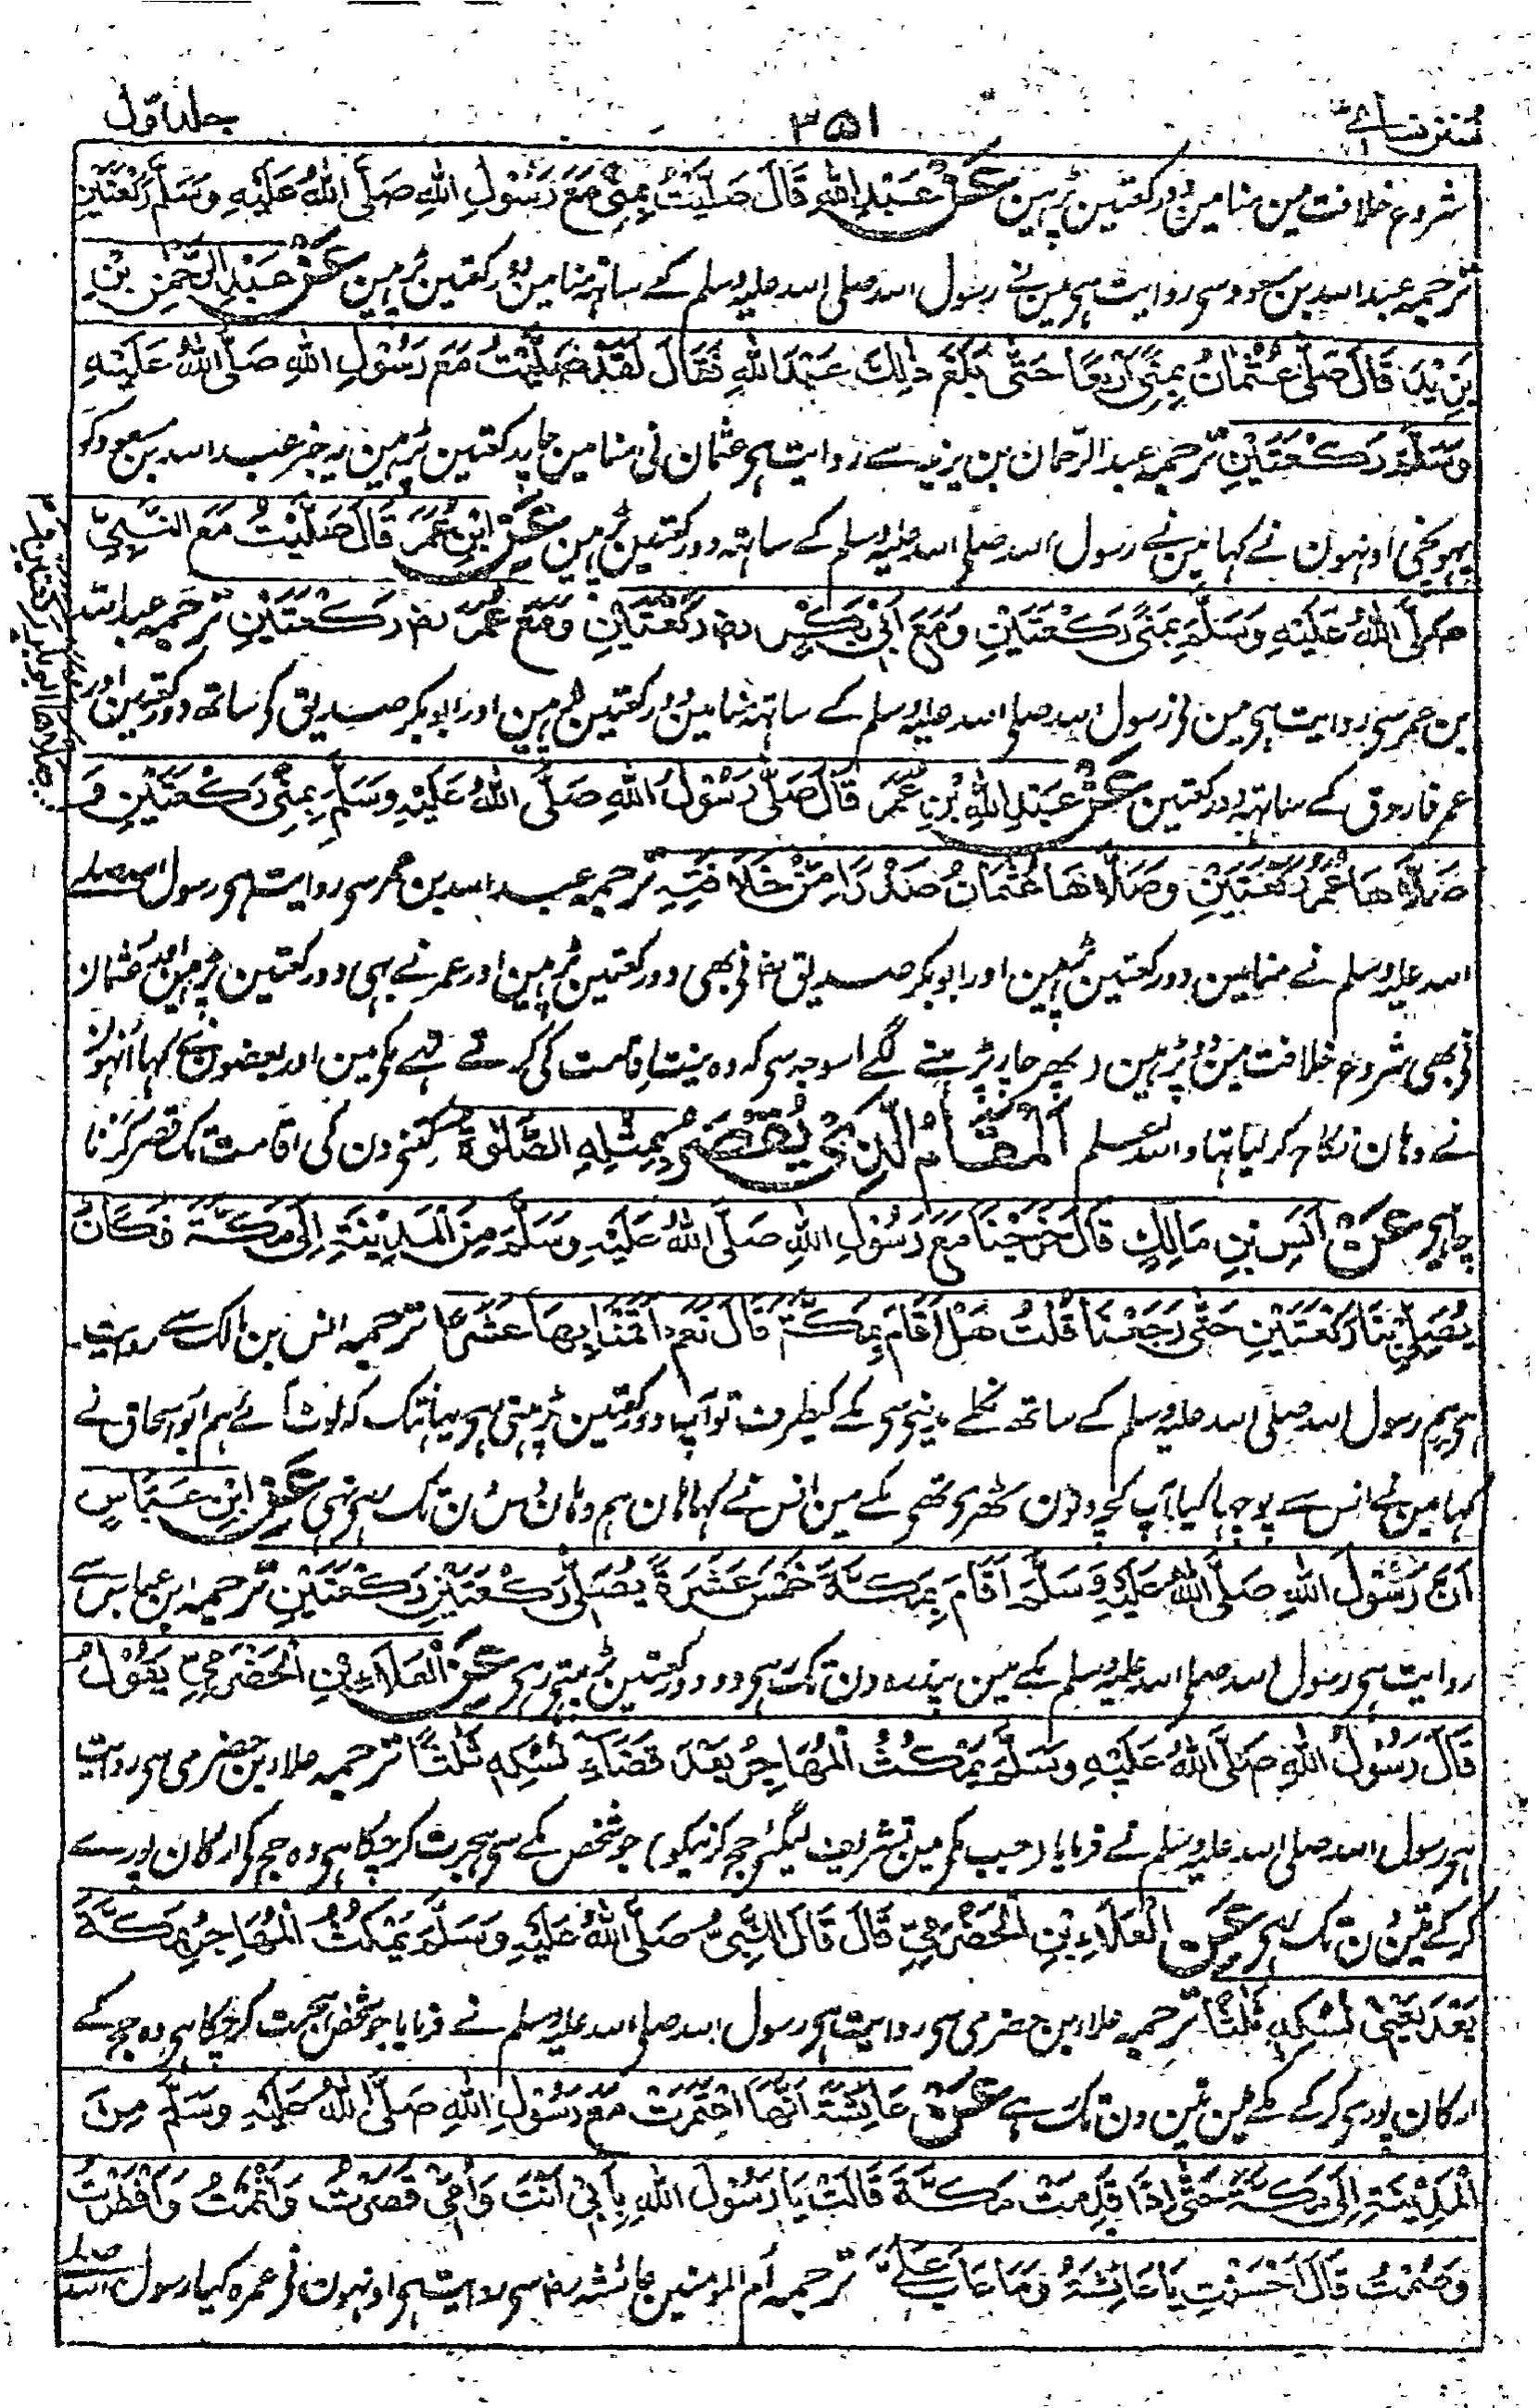 سنن نسائی
۳۵۱
جلد اول
شروع خلافت مین منا مین دو رکعتین پڑہین عَنْ عَبْدِ اللهِ قَالَ صَلَّيْتُ بِمِنًى مَعَ رَسُوْلِ اللهِ صَلَّى اللهُ عَلَيْهِ وَسَلَّمَ رَكْعَتَيْنِ
ترجمہ عبد اللہ بن مسعود سی روایت ہی مین نے رسول اللہ صلی اللہ علیہ وسلم کے ساتہ منا مین دو رکعتین پڑہین عَنْ عَبْدِ الرَّحْمٰنِ بْنِ
يَزِيْدَ قَالَ صَلَّى عُثْمَانُ بِمِنًى اَرْبَعًا حَتَّى بَلَغَ ذٰلِكَ عَبْدَ اللهِ فَقَالَ لَقَدْ صَلَّيْتُ مَعَ رَسُوْلِ اللهِ صَلَّى اللهُ عَلَيْهِ
وَسَلَّمَ رَكْعَتَيْنِ ترجمہ عبد الرحمان بن یزید سے روایت ہی عثمان نی منا مین چار رکعتین پڑہین یہ خبر عبد اللہ بن مسعود کو
پہونچی اونہون نے کہا مین نے رسول اللہ صلی اللہ علیہ وسلم کے ساتہہ دو رکعتین پڑہین عَنِ ابْنِ عُمَرَ قَالَ صَلَّيْتُ مَعَ النَّبِيِّ
صَلَّى اللهُ عَلَيْهِ وَسَلَّمَ بِمِنًى رَكْعَتَيْنِ وَمَعَ اَبِيْ بَكْرٍ رض رَكْعَتَيْنِ وَمَعَ عُمَرَ رض رَكْعَتَيْنِ ترجمہ عبد اللہ
بن عمر سی روایت ہی مین نی رسول اللہ صلی اللہ علیہ وسلم کے ساتہہ منا مین دو رکعتین پڑہین اور ابو بکر صدیق کو ساتھ دو رکعتین اور
عمر فاروق کے ساتہہ دو رکعتین عَنْ عَبْدِ اللهِ بْنِ عُمَرَ قَالَ صَلَّى رَسُوْلُ اللهِ صَلَّى اللهُ عَلَيْهِ وَسَلَّمَ بِمِنًى رَكْعَتَيْنِ وَ
صَلَّاهَا عُمَرُ رَكْعَتَيْنِ وَصَلَّاهَا عُثْمَانُ صَدْرًا مِنْ خِلَافَتِهٖ ترجمہ عبد اللہ بن عمر سی روایت ہی رسول اللہ صلے
اللہ علیہ وسلم نے منا مین دو رکعتین پڑہین اور ابو بکر صدیق رض نی بھی دو رکعتین پڑہین اور عمر نے بہی دو رکعتین پڑہین اور عثمان
نی بھی شروع خلافت مین دو پڑہین (پھر چار پڑہنے لگے اسوجہ سی کہ وہ نیت اقامت کی کرتے تہے مکہ مین اور بعضون نے کہا اُنہون
نے وہان نکاح کر لیا تہا واللہ اعلم اَلْمَقَامُ الَّذِيْ يُقْصَرُ بِمِثْلِهِ الصَّلٰوةُ کتنے دن کی اقامت تک قصر کرنا
چاہیی عَنْ اَنَسِ بْنِ مَالِكٍ قَالَ خَرَجْنَا مَعَ رَسُوْلِ اللهِ صَلَّى اللهُ عَلَيْهِ وَسَلَّمَ مِنَ الْمَدِيْنَةِ اِلٰى مَكَّةَ فَكَانَ
يُصَلِّيْ بِنَا رَكْعَتَيْنِ حَتَّى رَجَعْنَا قُلْتُ هَلْ اَقَامَ بِمَكَّةَ قَالَ نَعَمْ اَقَمْنَا بِهَا عَشْرًا ترجمہ انس بن مالک سے روایت
ہی ہم رسول اللہ صلی اللہ علیہ وسلم کے ساتھ نکلے مدینے سی مکے کیطرف تو آپ دو رکعتین پڑہتی رہی یہانتک کہ لوٹ آئے ہم ابو اسحاق نے
کہا مین نے انس سے پوچہا کیا آپ کچہ دنون ٹھری تھی مکے مین انس نے کہا ہان ہم وہان دس دن تک رہی تہی عَنِ ابْنِ عَبَّاسٍ
اَنَّ رَسُوْلَ اللهِ صَلَّى اللهُ عَلَيْهِ وَسَلَّمَ اَقَامَ بِمَكَّةَ خَمْسَ عَشَرَةَ يُصَلِّيْ رَكْعَتَيْنِ رَكْعَتَيْنِ ترجمہ ابن عباس سے
روایت ہی رسول اللہ صلی اللہ علیہ وسلم مکے مین پندرہ دن تک رہی دو دو رکعتین پڑہتی رہی عَنِ الْعَلَاءِ بْنِ الْحَضْرَمِيِّ يَقُوْلُ
قَالَ رَسُوْلُ اللهِ صَلَّى اللهُ عَلَيْهِ وَسَلَّمَ يَمْكُثُ الْمُهَاجِرُ بَعْدَ قَضَاءِ نُسُكِهٖ ثَلٰثًا ترجمہ علاء بن حضرمی سی روایت
ہی رسول اللہ صلی اللہ علیہ وسلم نے فرمایا (جب مکہ مین تشریف لیگئے حج کرنیکو) جو شخص مکے سی ہجرت کر چکا ہی وہ حج کو ارکان پورے
کر کے تین دن تک رہی عَنِ الْعَلَاءِ بْنِ الْحَضْرَمِيِّ قَالَ قَالَ النَّبِيُّ صَلَّى اللهُ عَلَيْهِ وَسَلَّمَ يَمْكُثُ الْمُهَاجِرُ بِمَكَّةَ
بَعْدَ يَعْنِيْ نُسُكِهٖ ثَلٰثًا ترجمہ علاء بن حضرمی سی روایت ہی رسول اللہ صلی اللہ علیہ وسلم نے فرمایا جو شخص ہجرت کر چکا ہی وہ حج کے
ارکان پوری کر کے مکے مین تین دن تک رہے عَنْ عَائِشَةَ اَنَّهَا اعْتَمَرَتْ مَعَ رَسُوْلِ اللهِ صَلَّى اللهُ عَلَيْهِ وَسَلَّمَ مِنَ
الْمَدِيْنَةِ اِلٰى مَكَّةَ حَتَّى اِذَا قَدِمَتْ مَكَّةَ قَالَتْ يَا رَسُوْلَ اللهِ بِاَبِيْ اَنْتَ وَاُمِّيْ قَصَرْتَ وَاَتْمَمْتُ وَاَفْطَرْتَ
وَصُمْتُ قَالَ اَحْسَنْتِ يَا عَائِشَةُ وَمَا عَابَ عَلَيَّ ترجمہ اُم المومنین عائشہ رض سی روایت ہی اونہون نی عمرہ کیا رسول اللہ صلے